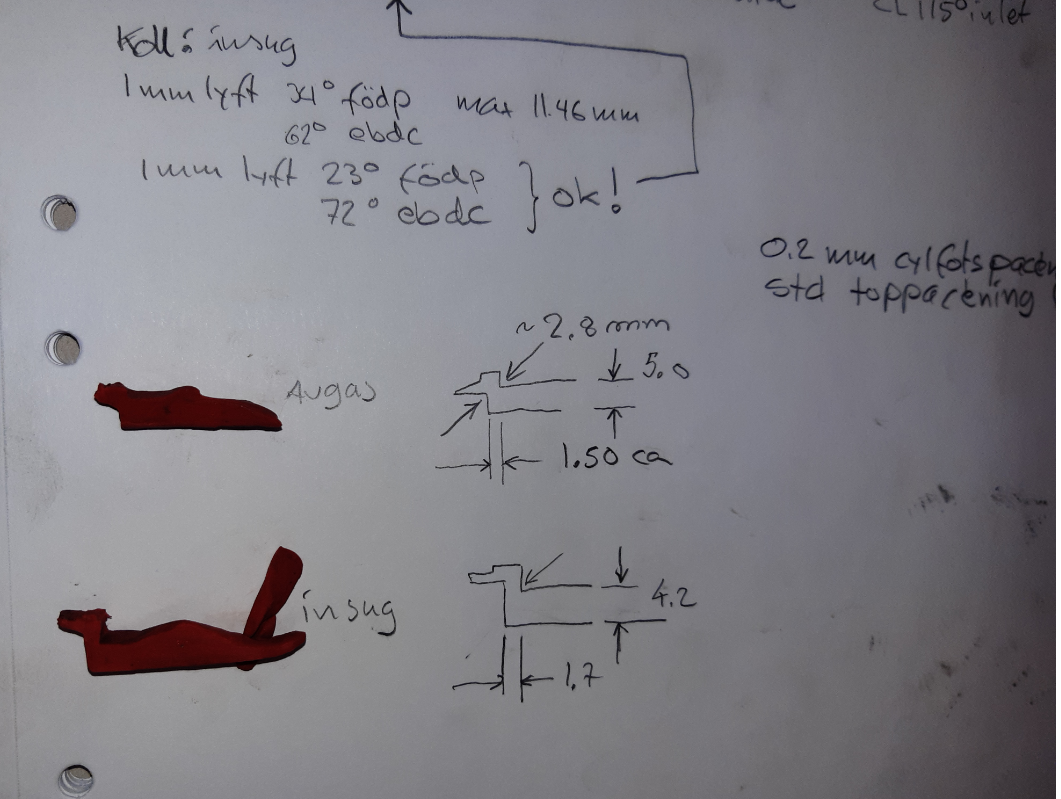 CL 115° inlet
Koll: insug
1mm lyft 34° födp max 11.46 mm
62° ebdc
1mm lyft 23° födp
72° ebdc } ok!
0.2 mm cylfotspacen
std toppacening
~2.8 mm
Avgas
5.0
1.50 ca
insug
4.2
1.7